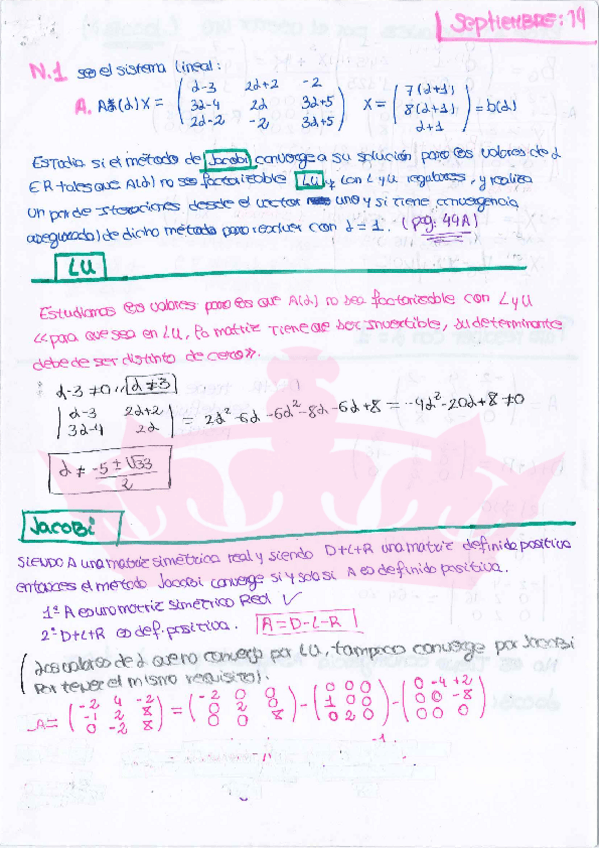 SEPTIEMBRE: 14
N.1 sea el sistema lineal:
A. A(α) X = ( α-3 2α+2 -2 ; 3α-4 2α 3α+5 ; 2α-2 -2 3α+5 ) X = ( 7(α+1) ; 8(α+1) ; α+1 ) = b(α)
Estudia si el método de Jacobi converge a su solución para los valores de α
∈ R tales que A(α) no sea factorizable LU, con L y U regulares, y realiza
un par de iteraciones desde el vector uno y si tiene convergencia
asegurada) de dicho método para resolver con α=1. (pag: 44A)
LU
Estudiamos los valores para los que A(α) no sea factorizable con L y U
<<para que sea en LU, la matriz tiene que ser invertible, su determinante
debe de ser distinto de cero>>.
α-3 ≠0 // α≠3
| α-3 2α+2 ; 3α-4 2α | = 2α² -6α -6α² -8α -6α +8 = -4α² -20α +8 ≠0
α ≠ (-5 ± √33)/2
Jacobi
siendo A una matriz simétrica real y siendo D+L+R una matriz definida positiva
entonces el metodo Jacobi converge si y solo si A es definida positiva.
1º A es una matriz simétrica Real ✓
2º D+L+R es def. positiva. A=D-L-R
(Los valores de α que no converja por LU, tampoco converge por Jacobi
por tener el mismo requisito).
A= ( -2 4 -2 ; -1 2 8 ; 0 -2 8 ) = ( -2 0 0 ; 0 2 0 ; 0 0 8 ) - ( 0 0 0 ; 1 0 0 ; 0 2 0 ) - ( 0 -4 +2 ; 0 0 -8 ; 0 0 0 )
-1